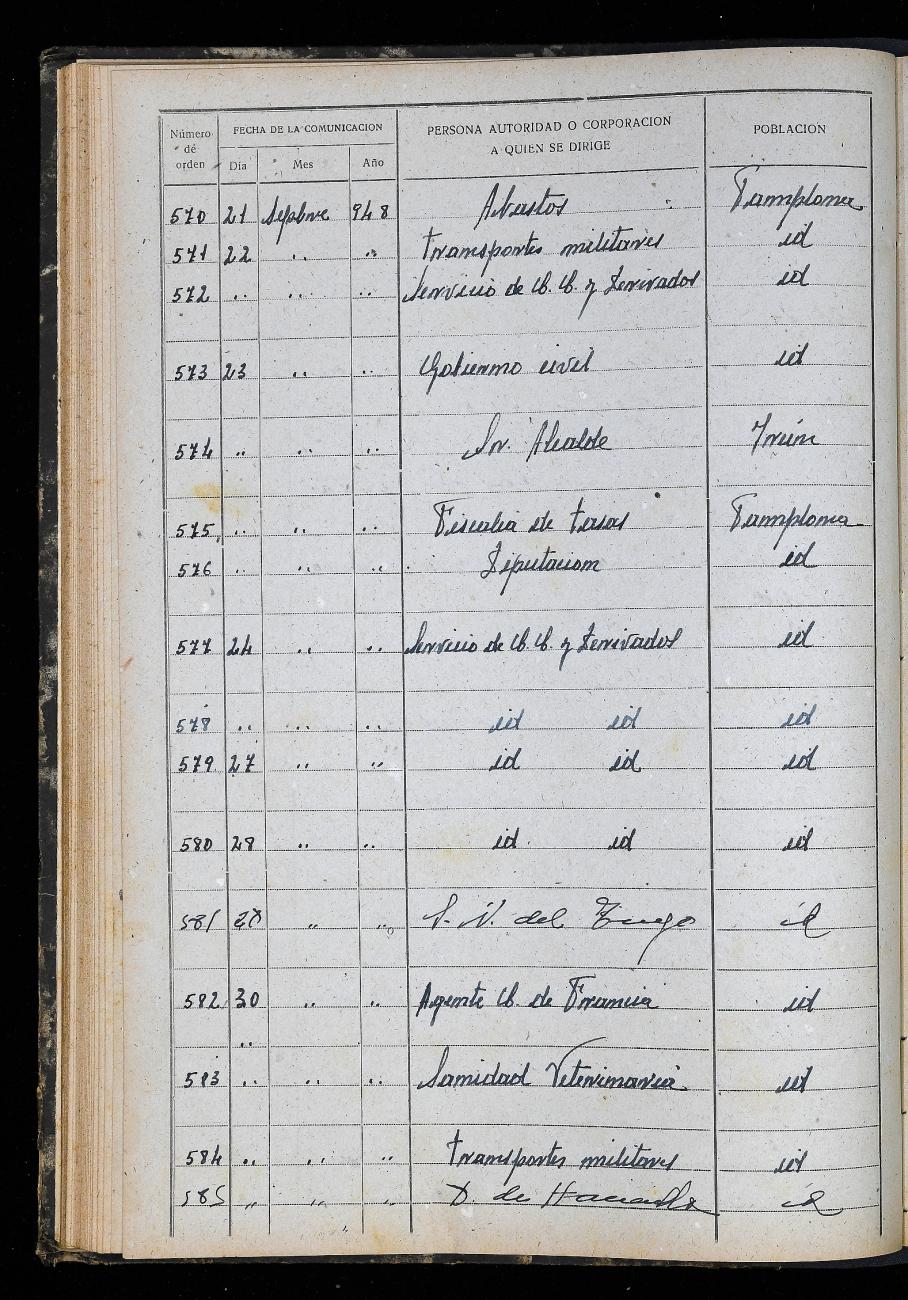 Número de orden FECHA DE LA COMUNICACION PERSONA AUTORIDAD O CORPORACION A QUIEN SE DIRIGE POBLACION
Día Mes Año
570 21 Sepbre 948 Abastos Pamplona
571 22 .. .. transportes militares id
572 .. .. .. Servicio de C. C. y Derivados id
573 23 .. .. Gobierno civil id
574 .. .. .. Sr. Alcalde Irún
575 .. .. .. Fiscalia de tasas Pamplona
576 .. .. .. Diputacion id
577 24 .. .. Servicio de C. C. y Derivados id
578 .. .. .. id id id
579 27 .. .. id id id
580 28 .. .. id id id
581 28 " " S. N. del Trigo id
582 30 .. .. Agente C. de Francia id
..
583 .. .. .. Sanidad Veterinaria id
584 .. .. .. transportes militares id
585 " " " D. de Hacienda id